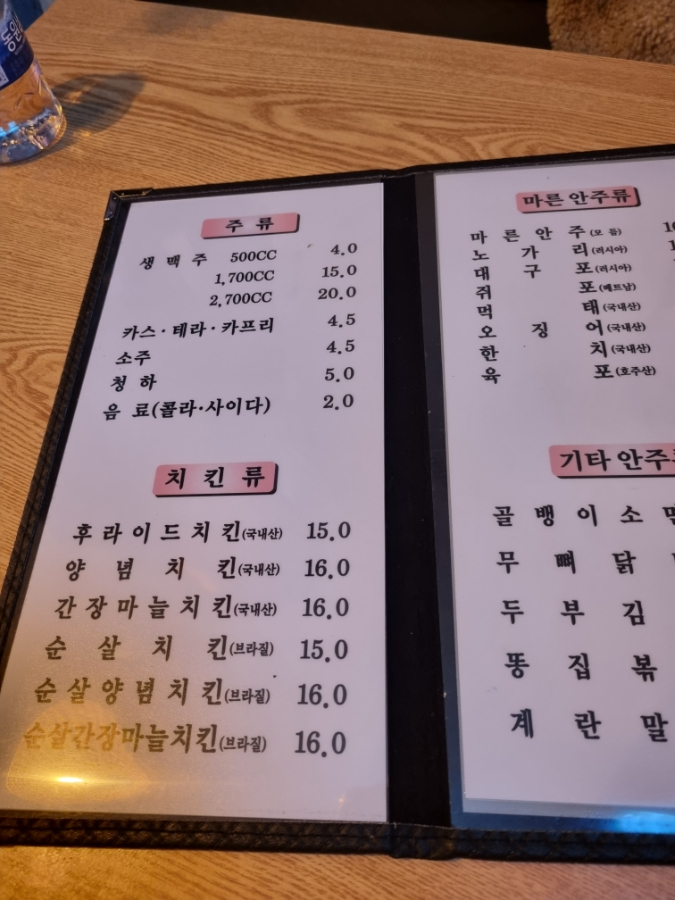 동원
주 류
생 맥 주 500CC 4.0
1,700CC 15.0
2,700CC 20.0
카스·테라·카프리 4.5
소주 4.5
청 하 5.0
음 료(콜라·사이다) 2.0
치 킨 류
후 라 이 드 치 킨(국내산) 15.0
양 념 치 킨(국내산) 16.0
간 장 마 늘 치 킨(국내산) 16.0
순 살 치 킨(브라질) 15.0
순 살 양 념 치 킨(브라질) 16.0
순살간장마늘치킨(브라질) 16.0
마른 안주류
마 른 안 주(모 듬)
노 가 리(러시아)
대 구 포(러시아)
쥐 포(베트남)
먹 태(국내산)
오 징 어(국내산)
한 치(국내산)
육 포(호주산)
기타 안주류
골 뱅 이 소
무 뼈 닭
두 부 김
똥 집 볶
계 란 말